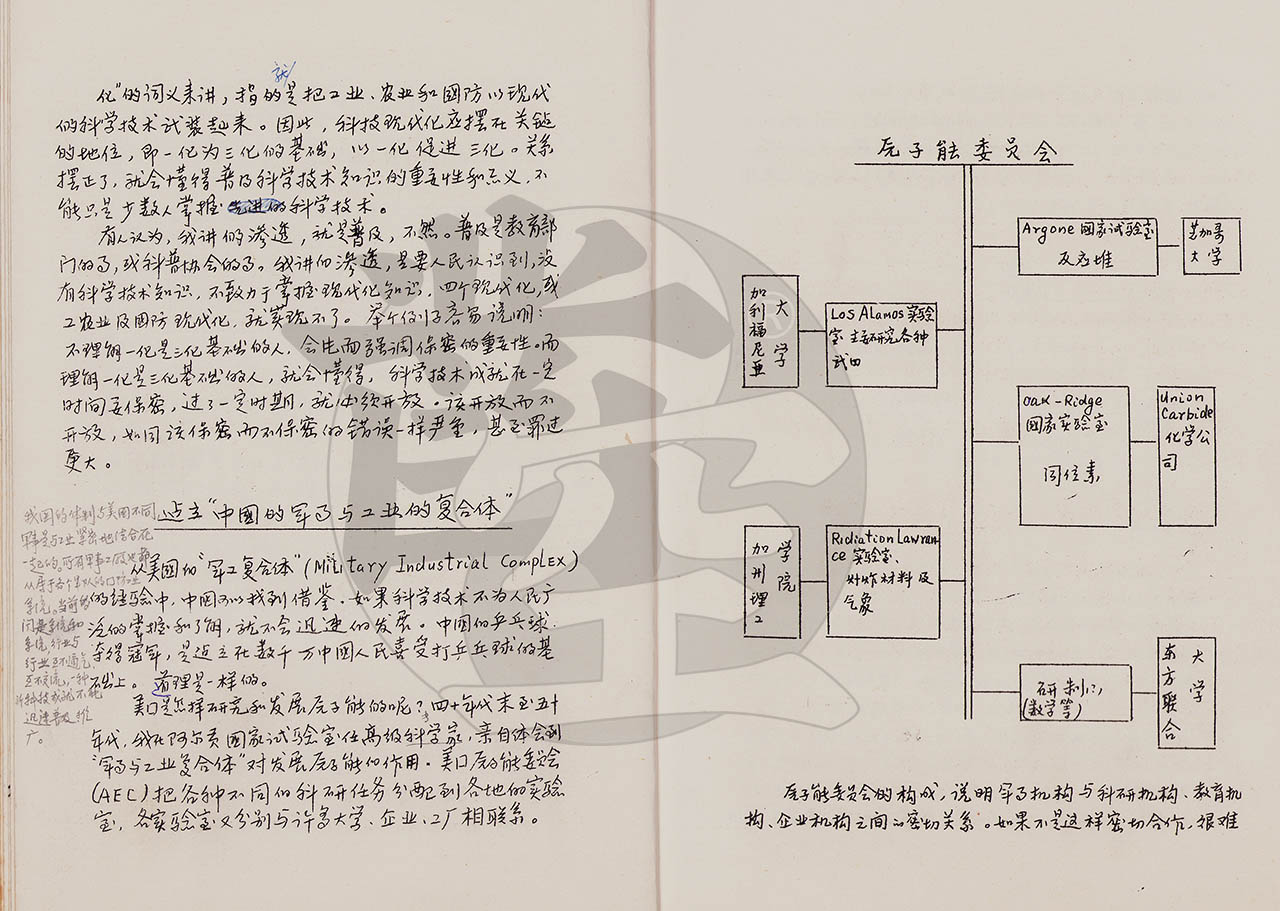 就
化"的词义来讲，指的是把工业、农业和國防以现代
的科学技术武装起来。因此，科技现代化应摆在关键
的地位，即一化为三化的基础，以一化促进三化。关系
摆正了，就会懂得普及科学技术知识的重要性和意义，不
能只是少数人掌握先进的科学技术。
有人认为，我讲的渗透，就是普及，不然。普及是教育部
门的事，或科普协会的事。我讲的渗透，是要人民认识到，没
有科学技术知识，不致力于掌握现代化知识，四个现代化，或
工农业及国防现代化，就实现不了。举个例子容易说明：
不理解一化是三化基础的人，会片面强调保密的重要性。而
理解一化是三化基础的人，就会懂得，科学技术成就在一定
时间要保密，过了一定时期，就必须开放。该开放而不
开放，如同该保密而不保密的错误一样严重，甚至罪过
更大。
迠立"中國的军事与工业的复合体"
我国的体制与美国不同
军事与工业紧密地结合在
一起的，所有军事工厂也都
从属于各个部队的门防工业
系统。当前的
问题系统和
系统，行业与
行业互不通气
互不交流，一种
新科技成就不能
迅速普及推
广。
从美國的"军工复合体"(Military Industrial Complex)
的经验中，中国可以找到借鉴。如果科学技术不为人民广
泛的掌握和了解，就不会迅速的发展。中国的乒乓球
夺得冠军，是迠立在数千万中國人民喜爱打乒乓球的基
础上。道理是一样的。
美囗是怎样研究和发展原子能的呢？四十年代末至五十
年代，我在阿尔贡国家试验室任高级科学家，亲自体会到
"军事与工业复合体"对发展原子能的作用。美囗原子能委员会
(AEC)把各种不同的科研任务分配到各地的实验
室，各实验室又分别与许多大学、企业、工厂相联系。
原子能委员会
Argone國家试验室
反应堆
芝加哥
大学
加利福尼亚
大学
Los Alamos实验
室 主要研究各种
武四
Oak-Ridge
國家实验室
同位素
Union
Carbide
化学公
司
加州理工
学院
Ridiation Lawran-
ce 实验室、
材料及
气象
研制
(数学等)
东方联合
大学
原子能委员会的构成，说明军事机构与科研机构、教育机
构、企业机构之间的密切关系。如果不是这样密切合作，很难